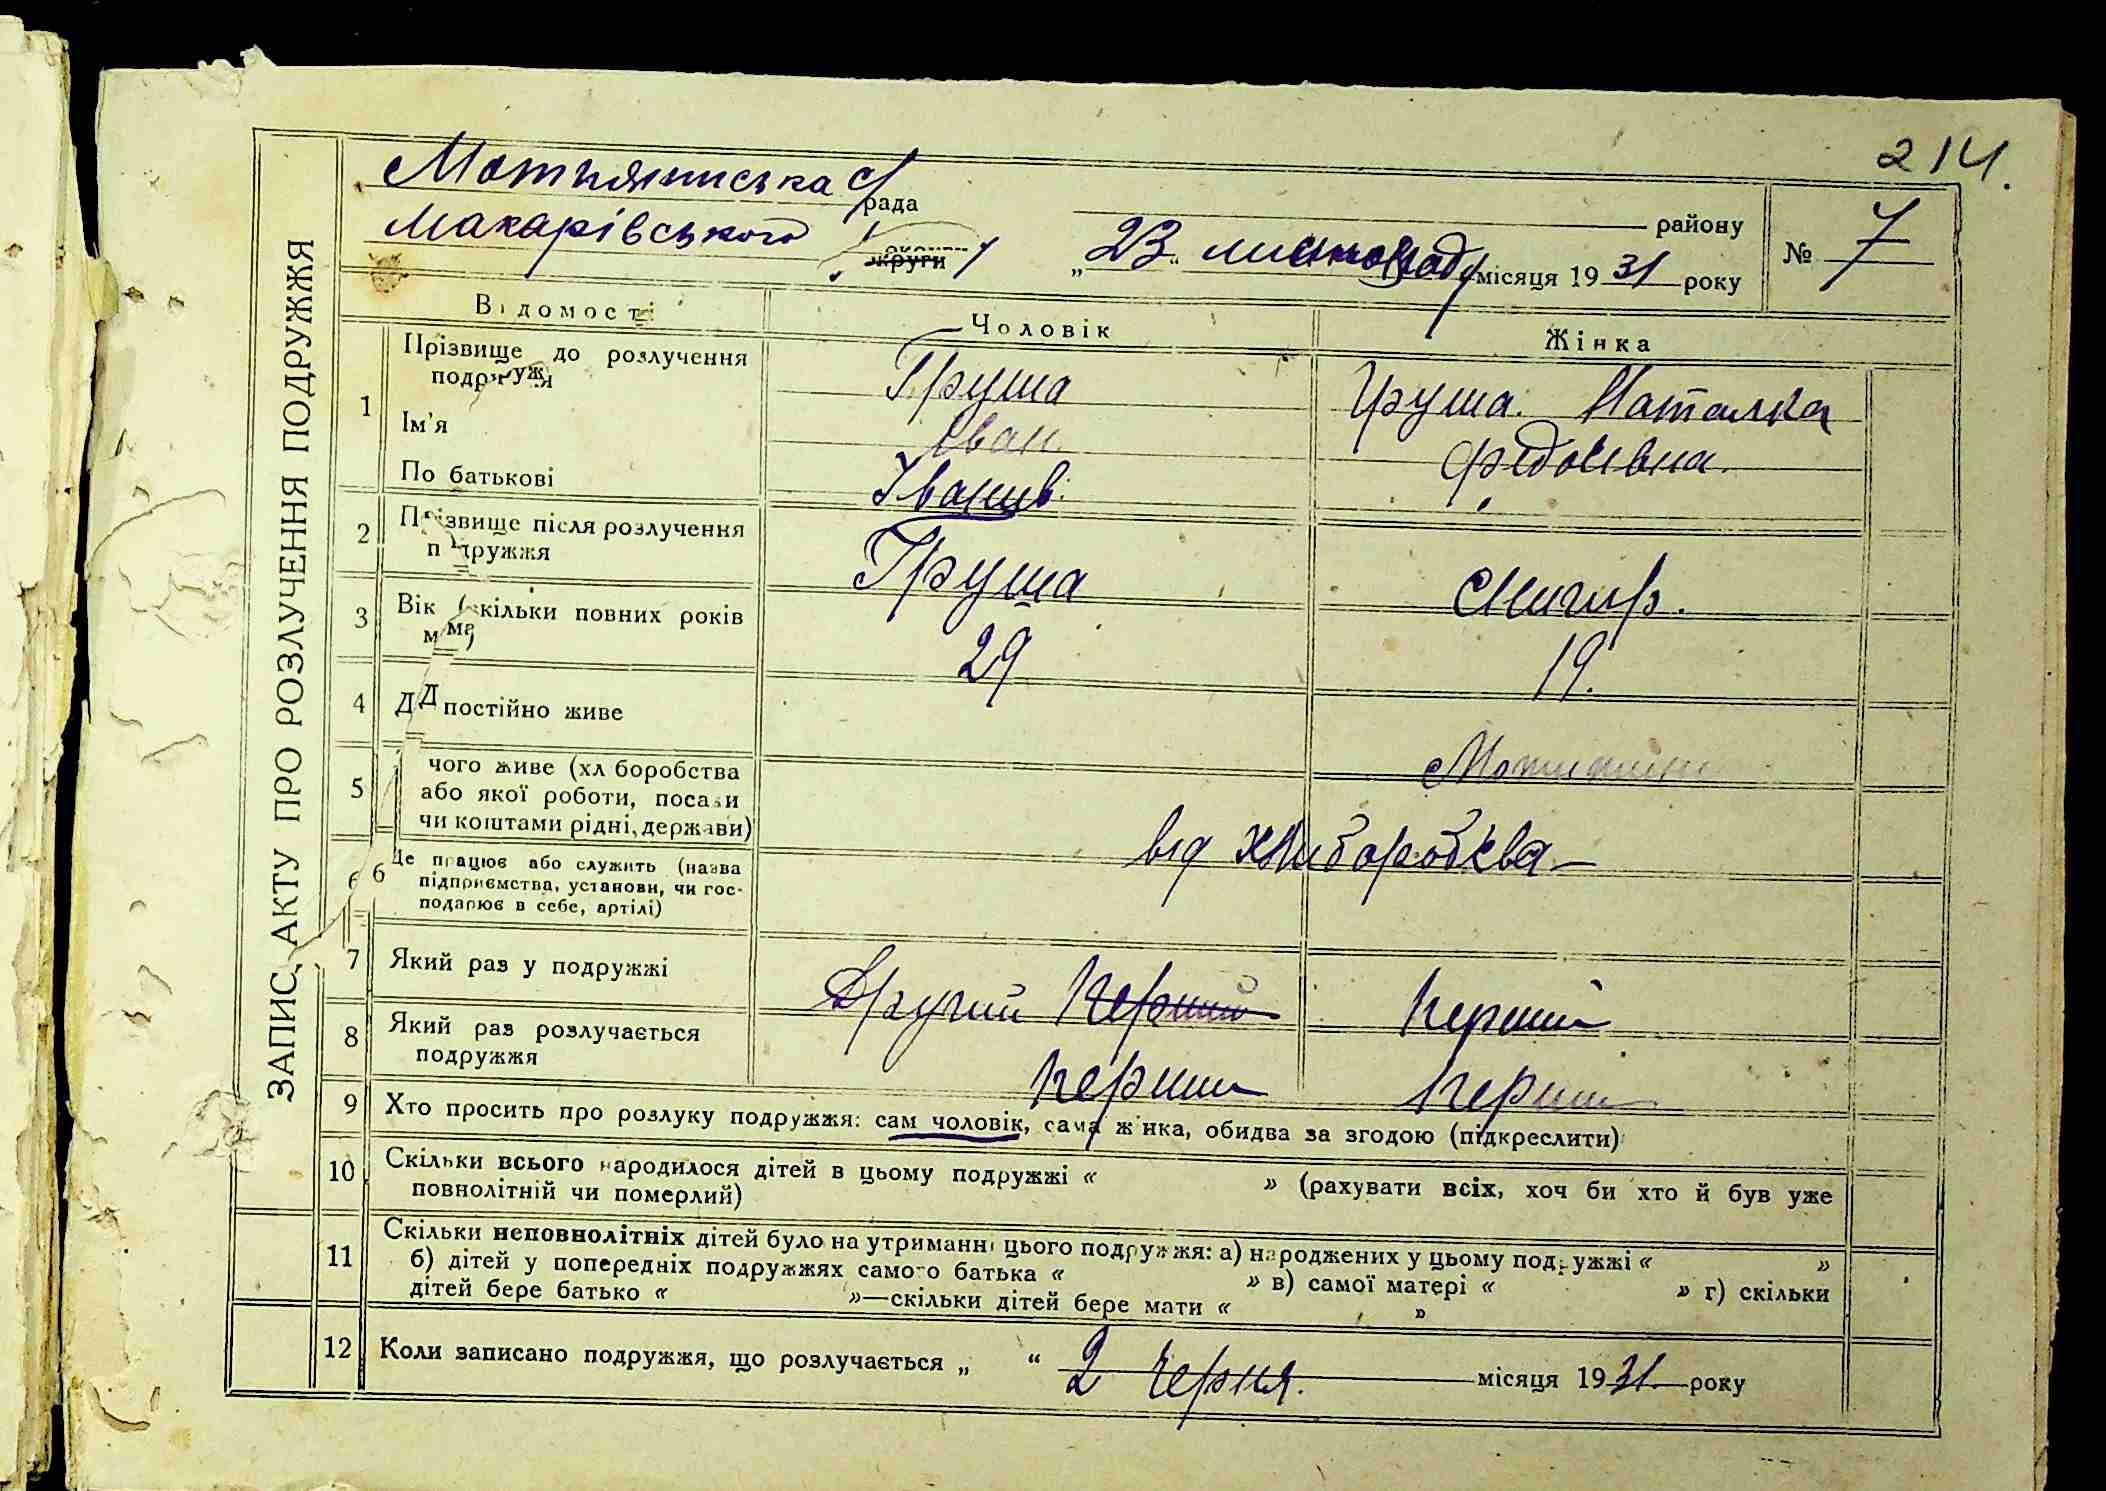 214.
ЗАПИС АКТУ ПРО РОЗЛУЧЕННЯ ПОДРУЖЖЯ
Мотижинська с/рада
Макарівського округи району
„23“ листопаду місяця 1931 року
№ 7
Відомості Чоловік Жінка
1 Прізвище до розлучення подружжя Груша Груша Наталка
Ім'я Іван Федосівна
По батькові Іванів.
2 Прізвище після розлучення подружжя Груша Мигир.
3 Вік (скільки повних років має) 29 19.
4 Де постійно живе Мотижин
5 З чого живе (хліборобства
або якої роботи, посади
чи коштами рідні, держави) від хліборобства
6 Де працює або служить (назва
підприємства, установи, чи гос-
подарює в себе, артілі)
7 Який раз у подружжі Другий Перший Перший
8 Який раз розлучається
подружжя Перший Перший
9 Хто просить про розлуку подружжя: сам чоловік, сама жінка, обидва за згодою (підкреслити)
10 Скільки всього народилося дітей в цьому подружжі « » (рахувати всіх, хоч би хто й був уже
повнолітній чи померлий)
11 Скільки неповнолітніх дітей було на утриманні цього подружжя: а) народжених у цьому подружжі « »
б) дітей у попередніх подружжях самого батька « » в) самої матері « » г) скільки
дітей бере батько « »—скільки дітей бере мати « »
12 Коли записано подружжя, що розлучається „ “ 2 червня. місяця 1931. року